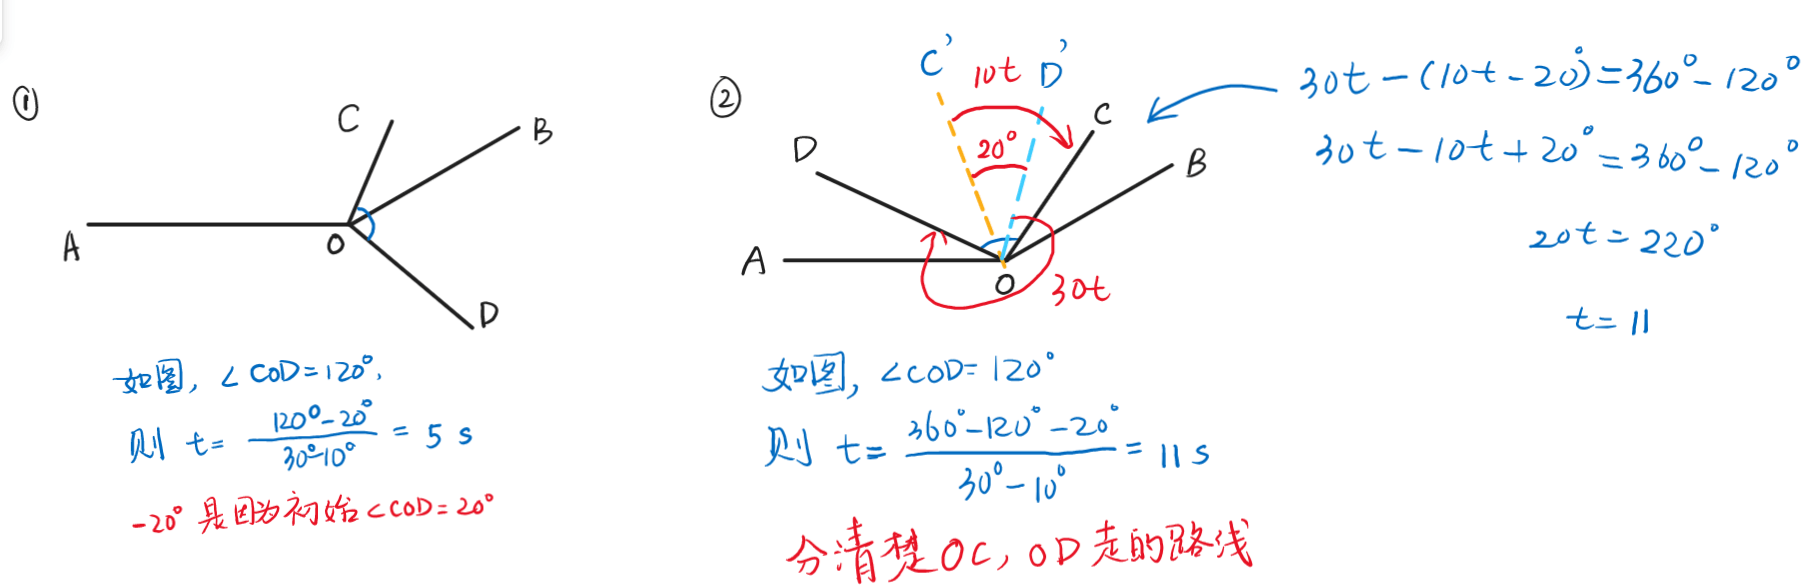 ①
C
B
A
O
D
如图, ∠COD=120°,
则 t= (120°-20°)/(30°-10°) = 5 s
-20° 是因为初始∠COD=20°
②
C'
10t
D'
C
20°
D
B
A
O
30t
如图, ∠COD=120°
则 t= (360°-120°-20°)/(30°-10°) = 11 s
分清楚OC, OD走的路线
30t-(10t-20°)=360°-120°
30t-10t+20°=360°-120°
20t=220°
t=11